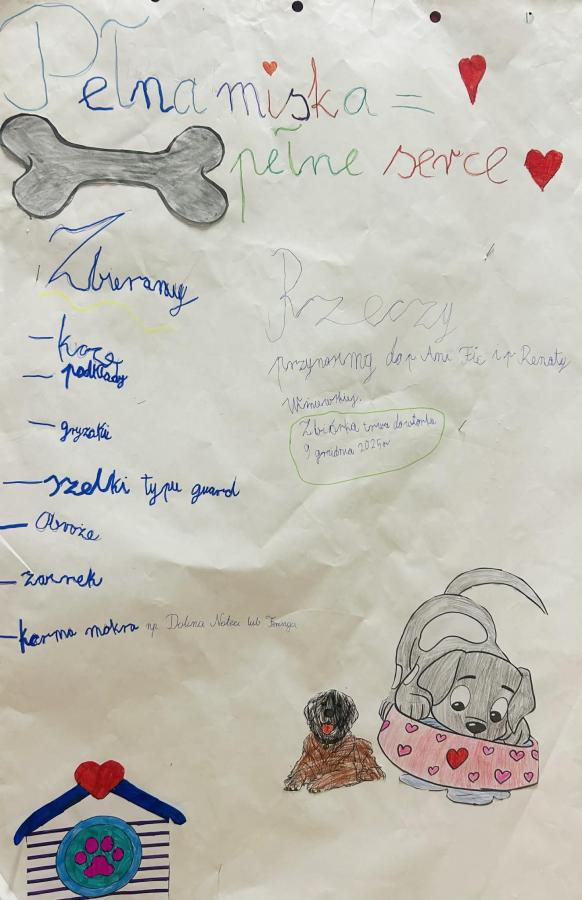 Pełna miska =
pełne serce
Zbieramy
- koce
- podkłady
- gryzaki
- szelki typu guard
- Obroże
- żarnek
- karma mokra np Dolina Noteci lub
Rzeczy
przynosimy do p Ani Fic i p Renaty
Wiśniewskiej.
Zbiórka trwa do wtorku
9 grudnia 2025r